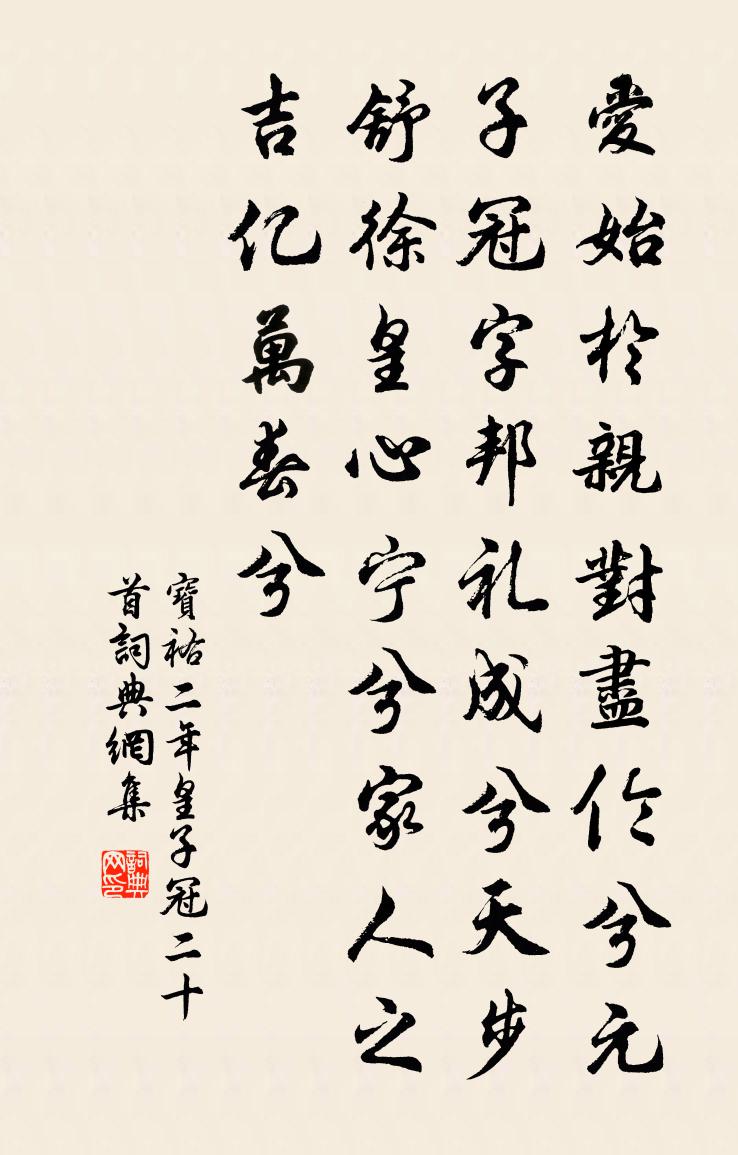 愛始於親對盡伦兮元
子冠字邦礼成兮天步
舒徐皇心宁兮家人之
吉亿萬春兮
寶祐二年皇子冠二十
首詞典網集
詞典网印